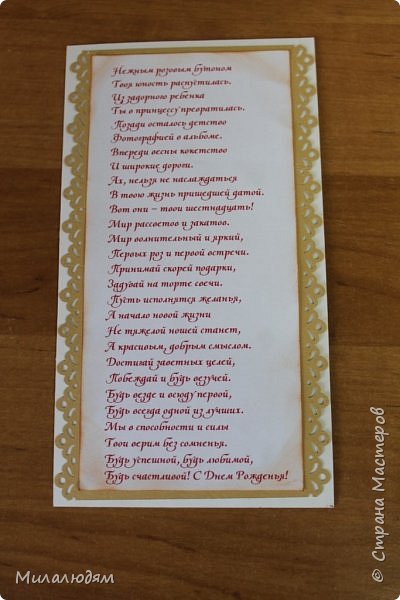 Нежным розовым бутоном
Твоя юность распустилась.
Из задорного ребенка
Ты в принцессу превратилась.
Позади осталось детство
Фотографией в альбоме.
Впереди весны кокетство
И широкие дороги.
Ах, нельзя не наслаждаться
В твою жизнь пришедшей датой.
Вот они – твои шестнадцать!
Мир рассветов и закатов.
Мир волнительный и яркий,
Первых роз и первой встречи.
Принимай скорей подарки,
Задувай на торте свечи.
Пусть исполнятся желанья,
А начало новой жизни
Не тяжелой ношей станет,
А красивым, добрым смыслом.
Достигай заветных целей,
Побеждай и будь везучей.
Будь везде и всюду первой,
Будь всегда одной из лучших.
Мы в способности и силы
Твои верим без сомненья.
Будь успешной, будь любимой,
Будь счастливой! С Днем Рожденья!
Милалюдям
© Страна Мастеров